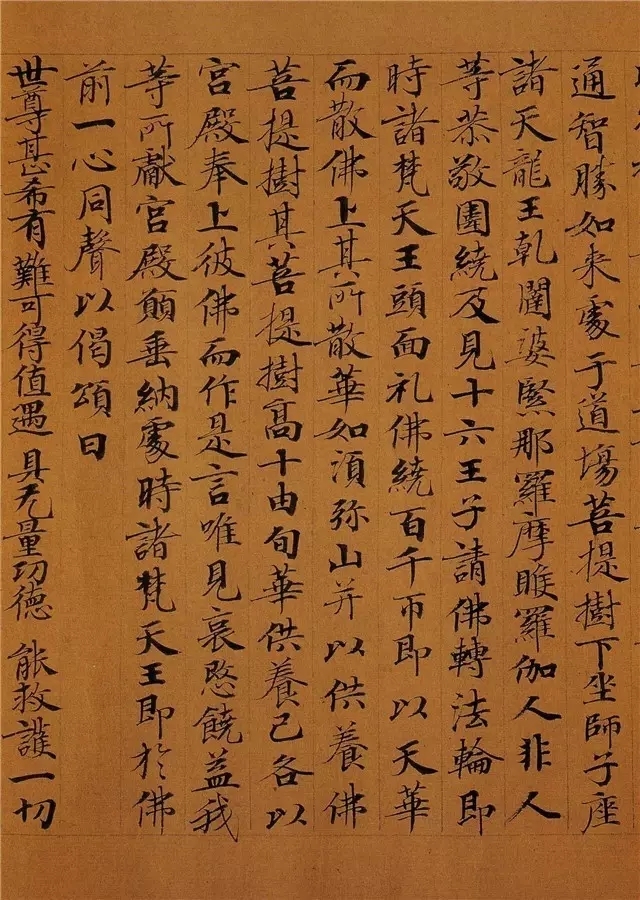 通智勝如来處于道場菩提樹下坐師子座
諸天龍王乹闥婆緊那羅摩睺羅伽人非人
等恭敬圍繞及見十六王子請佛轉法輪即
時諸梵天王頭面礼佛繞百千帀即以天華
而散佛上其所散華如湏弥山并以供養佛
菩提樹其菩提樹高十由旬華供養已各以
宮殿奉上彼佛而作是言唯見哀愍饒益我
等所獻宮殿願垂納處時諸梵天王即於佛
前一心同聲以偈頌曰
世尊甚希有 難可得值遇 具无量功德 能救護一切